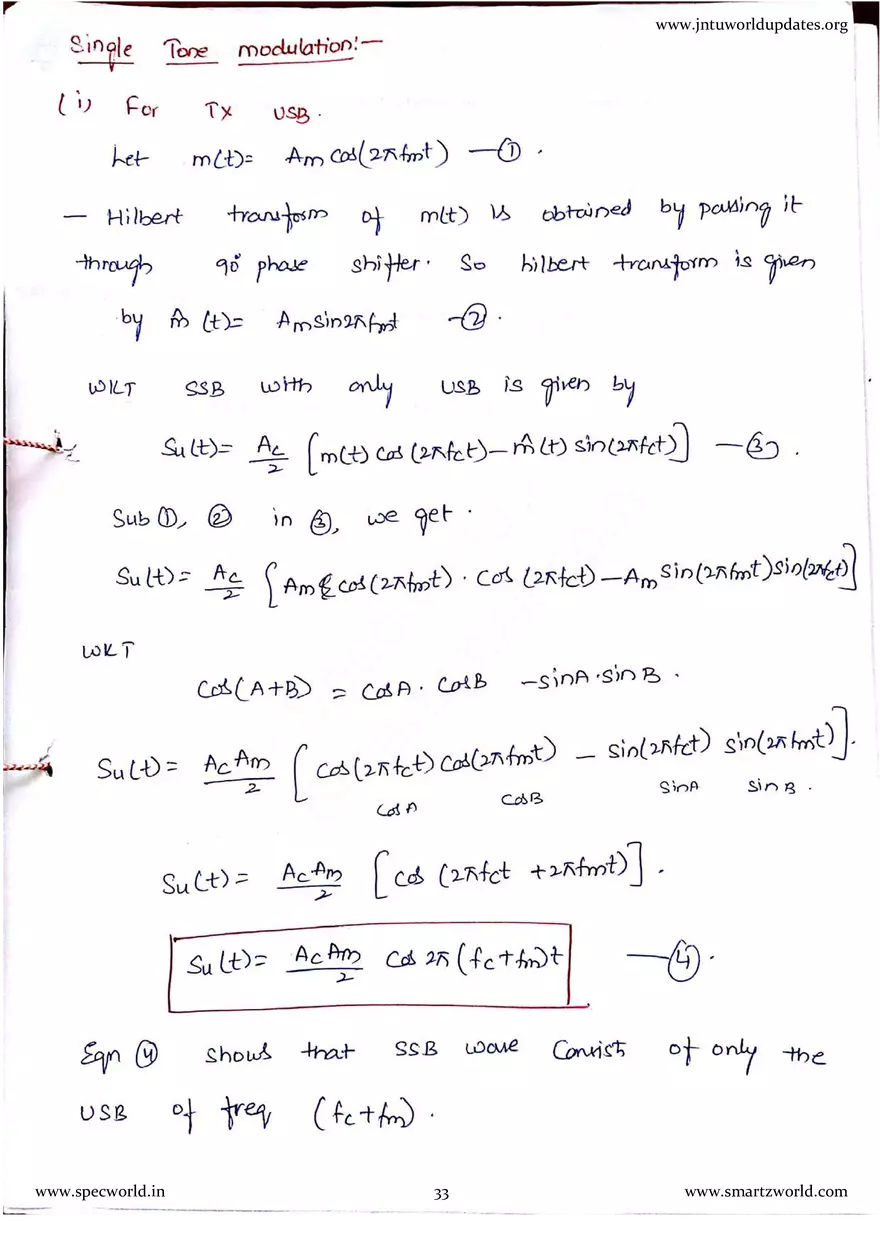 www.jntuworldupdates.org
Single Tone modulation:-
(i) For Tx USB.
Let m(t)= Am Cos(2πfmt) —①.
— Hilbert transform of m(t) is obtained by passing it
through 90° phase shifter. So hilbert transform is given
by m̂(t)= Amsin2πfmt —②.
WKT SSB with only USB is given by
Su(t)= Ac/2 [m(t) Cos(2πfct)— m̂(t) sin(2πfct)] —③.
Sub ①, ② in ③, we get.
Su(t)= Ac/2 [Am cos(2πfmt). Cos (2πfct)—Am Sin(2πfmt)sin(2πfct)]
WKT
Cos(A+B) = CosA. CosB -sinA.sinB.
Su(t)= AcAm/2 [Cos(2πfct)Cos(2πfmt) — Sin(2πfct) sin(2πfmt)].
CosA CosB SinA SinB.
Su(t)= AcAm/2 [Cos (2πfct +2πfmt)].
Su(t)= AcAm/2 Cos 2π(fc+fm)t —④.
Eqn ④ shows that SSB wave Consist of only the
USB of freq (fc+fm).
www.specworld.in 33 www.smartzworld.com